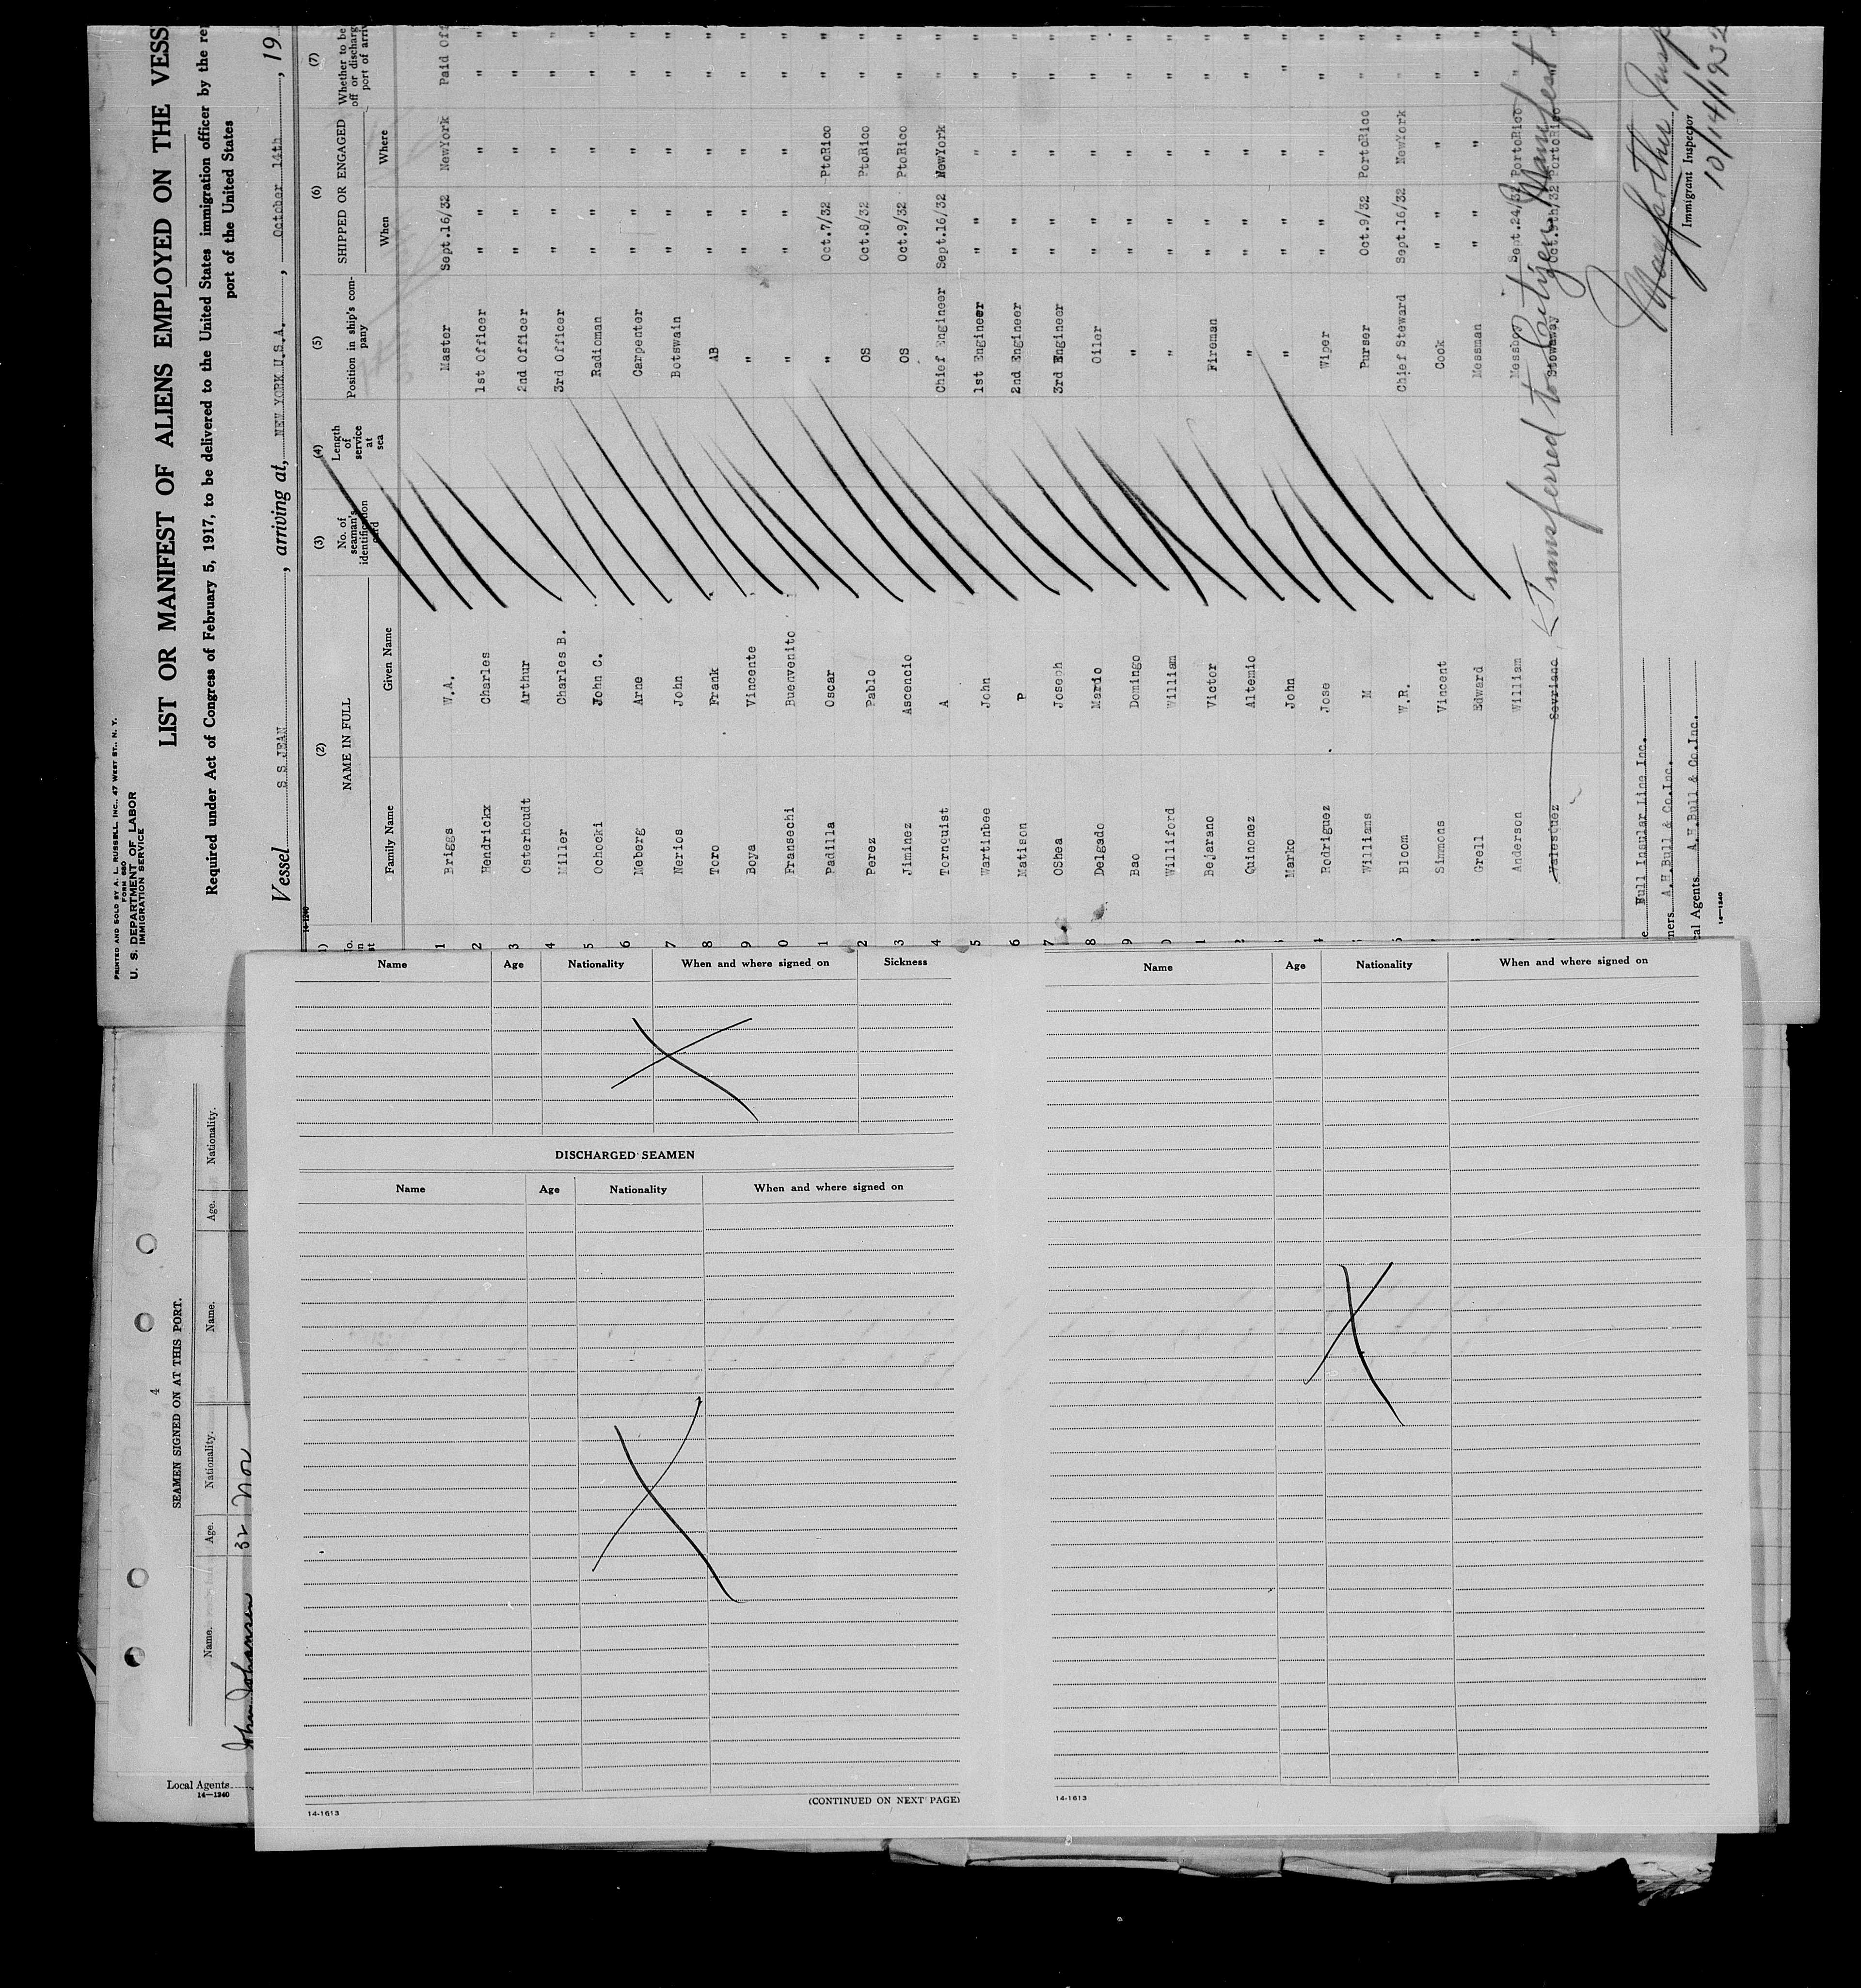 PRINTED AND SOLD BY A. L. RUSSELL, INC., 47 WEST ST., N. Y.
FORM 680
U. S. DEPARTMENT OF LABOR
IMMIGRATION SERVICE
LIST OR MANIFEST OF ALIENS EMPLOYED ON THE VESS
Required under Act of Congress of February 5, 1917, to be delivered to the United States immigration officer by the re
port of the United States
Vessel S S JEAN , arriving at, NEW YORK U.S.A. , October 14th , 19
14-1240
(2) (3) (4) (5) (6) (7)
NAME IN FULL No. of seaman's identification card Length of service at sea Position in ship's company SHIPPED OR ENGAGED Whether to be
off or discharg
port of arriv
Family Name Given Name When Where
1 Briggs W.A. Master Sept.16/32 NewYork Paid Of
2 Hendrickx Charles 1st Officer " " " "
3 Osterhoudt Arthur 2nd Officer " " " "
4 Miller Charles B. 3rd Officer " " " "
5 Ochocki John C. Radioman " " " "
6 Meberg Arne Carpenter " " " "
7 Nerios John Botswain " " " "
8 Toro Frank AB " " " "
9 Boya Vincente " " " " "
0 Fransechi Buenvenito " " " " "
1 Padilla Oscar " Oct.7/32 PtoRico " "
2 Perez Pablo OS Oct.8/32 PtoRico " "
3 Jiminez Ascencio OS Oct.9/32 PtoRico " "
4 Tornquist A Chief Engineer Sept.16/32 NewYork " "
5 Wartinbee John 1st Engineer " " " "
6 Matison P 2nd Engineer " " " "
7 OShea Joseph 3rd Engineer " " " "
8 Delgado Mario Oiler " " " "
9 Bao Domingo " " " " "
0 Williford William " " " " "
1 Bejarano Victor Fireman " " " "
2 Quinonez Altemio " " " " "
Marko John " " " " "
4 Rodriguez Jose Wiper " " " "
Willians M Purser Oct.9/32 PortoRico " "
Bloom W.R. Chief Steward Sept.16/32 NewYork " "
Simmons Vincent Cook " " " "
Grell Edward Messman " " " "
Anderson William Messboy Sept.24/32 PortoRico "
Valesquez Sevriano Stowaway Oct.9th/32 PortoRico "
Transferred to Citizen Manifest
Bull Insular Line Inc.
ners A.H.Bull & Co.Inc.
cal Agents A.H.Bull & Co.Inc.
14-1240
Immigrant Inspector
10/14/1932
4
SEAMEN SIGNED ON AT THIS PORT.
Name. Age. Nationality. Name. Age. Nationality.
John Johansen 32 Nor
Local Agents
14-1240
Name Age Nationality When and where signed on Sickness
DISCHARGED SEAMEN
Name Age Nationality When and where signed on
(CONTINUED ON NEXT PAGE)
14-1613
Name Age Nationality When and where signed on
14-1613